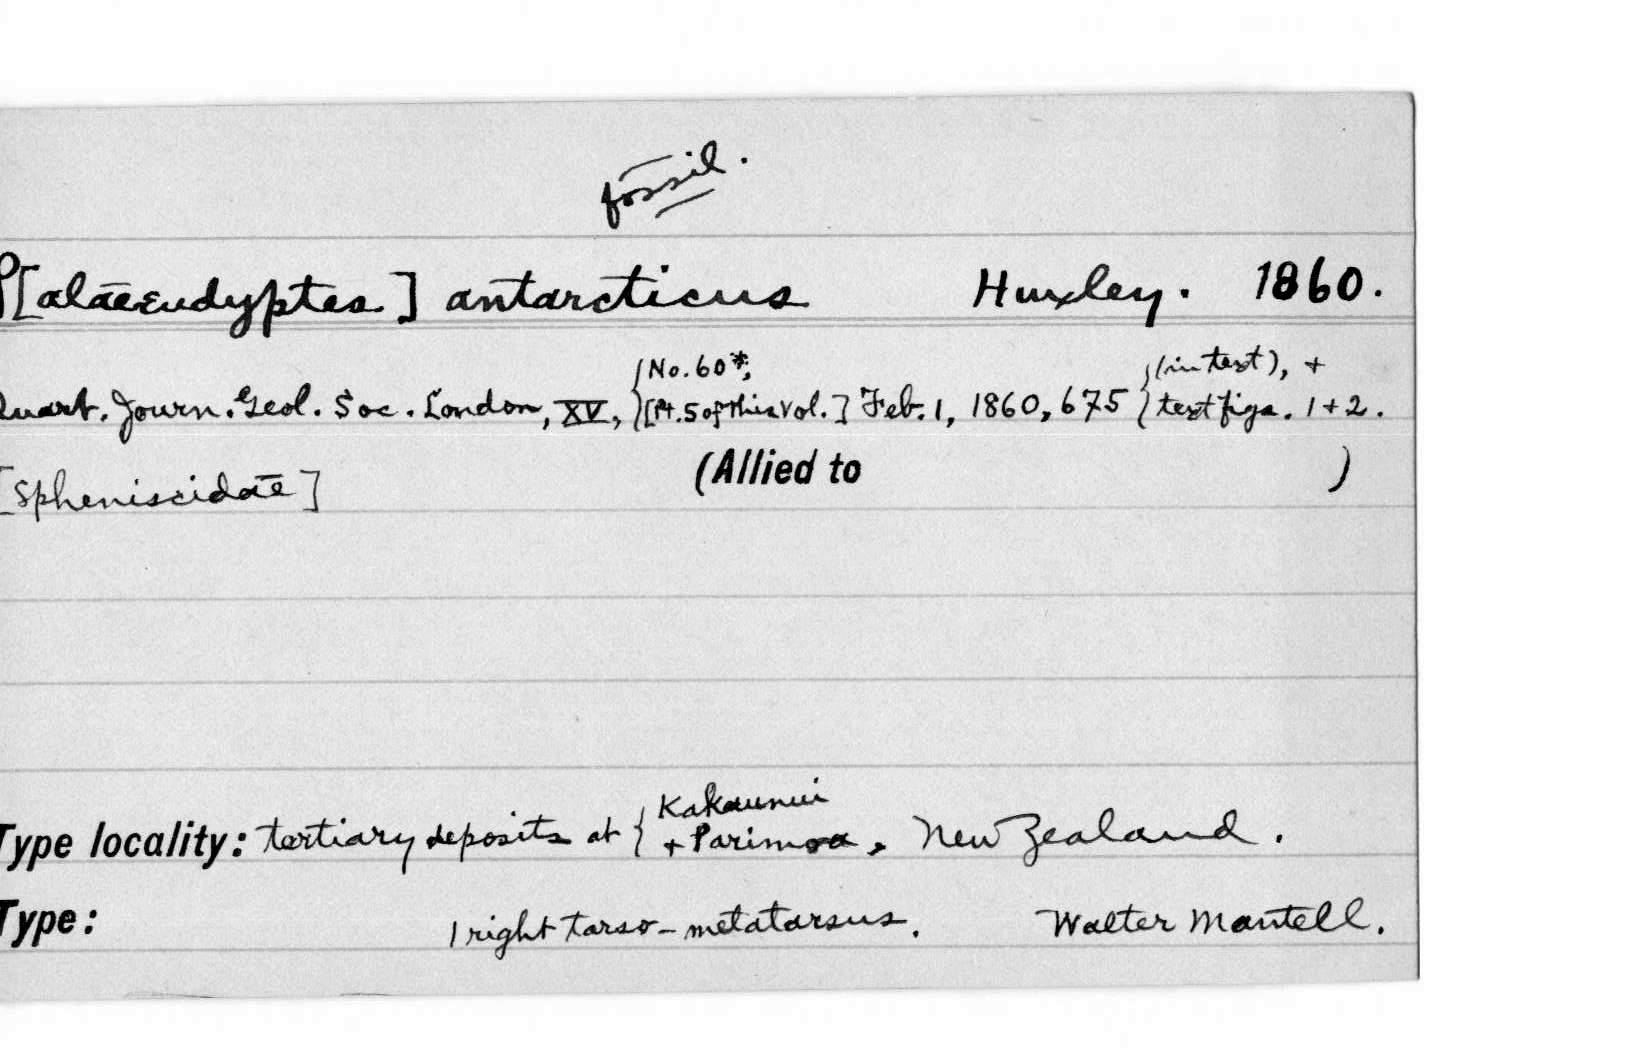 fossil.
P[alaeeudyptes] antarcticus Huxley. 1860.
Quart. Journ. Geol. Soc. London, XV, {No. 60*; [Pt. 5 of this vol.] Feb. 1, 1860, 675 {(in text), + text figs. 1 + 2.
[Spheniscidae] (Allied to )
Type locality: tertiary deposits at { Kakaunui + Parimoa, New Zealand.
Type: 1 right tarso-metatarsus. Walter Mantell.